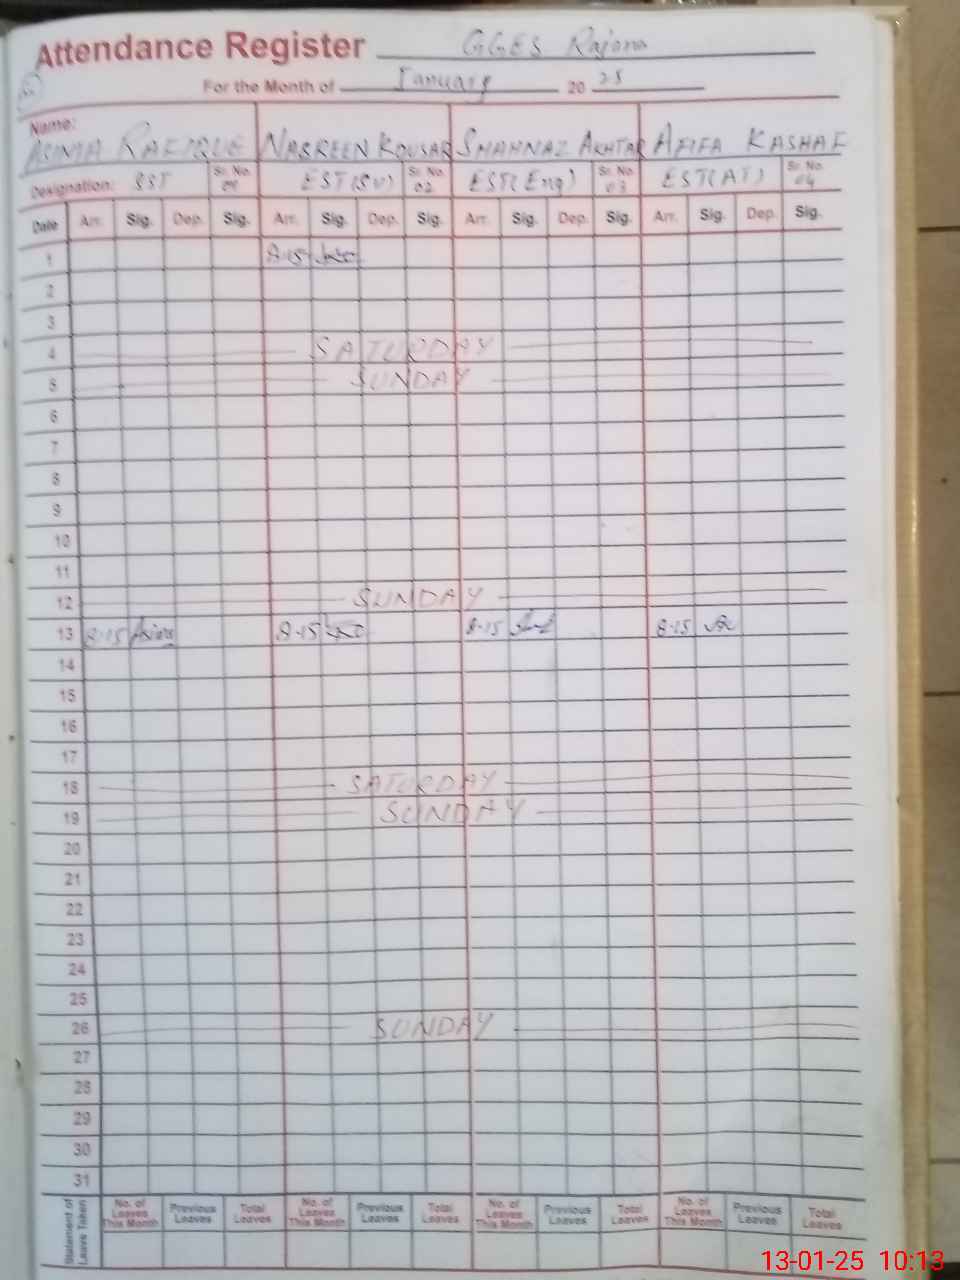 Attendance Register GGES Rajana
For the Month of January 20 25
Name:
ASIMA RAFIQUE NASREEN KOUSAR SHAHNAZ AKHTAR AFIFA KASHAF
Designation: SST Sr. No. 01 EST(SV) Sr. No. 02 EST(Eng) Sr. No. 03 EST(AT) Sr. No. 04
Date Arr. Sig. Dep. Sig. Arr. Sig. Dep. Sig. Arr. Sig. Dep. Sig. Arr. Sig. Dep. Sig.
1 8-15
2
3
4 SATURDAY
5 SUNDAY
6
7
8
9
10
11
12 SUNDAY
13 8-15 Asima 8-15 8-15 8-15
14
15
16
17
18 SATURDAY
19 SUNDAY
20
21
22
23
24
25
26 SUNDAY
27
28
29
30
31
Statement of Leave Taken No. of Leaves This Month Previous Leaves Total Leaves No. of Leaves This Month Previous Leaves Total Leaves No. of Leaves This Month Previous Leaves Total Leaves No. of Leaves This Month Previous Leaves Total Leaves
13-01-25 10:13